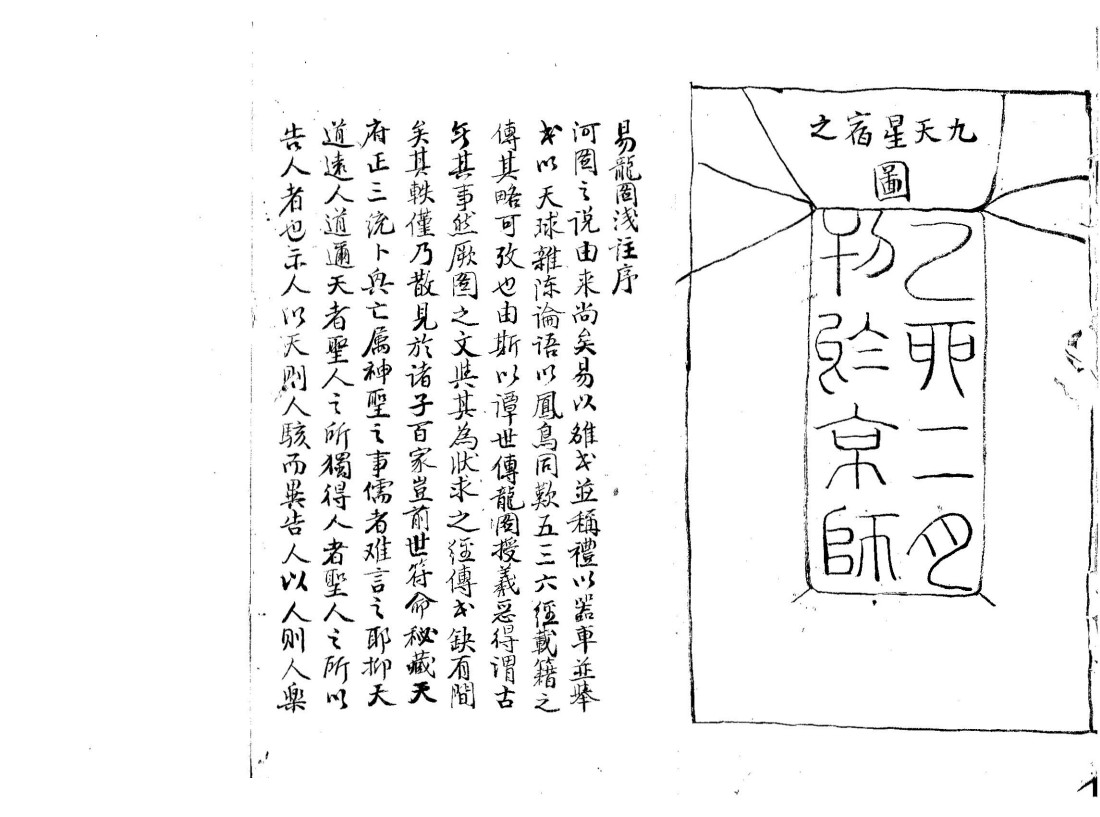 九天星宿之
圖
乙卯二月
刊於京師
易龍圖浅注序
河圖之说由来尚矣易以雒书並稱禮以器車並舉
书以天球雜陈論语以鳳鳥同歎五三六經載籍之
傳其略可攷也由斯以谭世傳龍圖授羲恶得谓古
无其事然厥圖之文與其為狀求之經傳书缺有間
矣其軼僅乃散見於诸子百家豈前世符命秘藏天
府正三统卜興亡属神聖之事儒者难言之耶抑天
道遠人道邇天者聖人之所獨得人者聖人之所以
告人者也示人以天則人駭而異告人以人则人樂
1